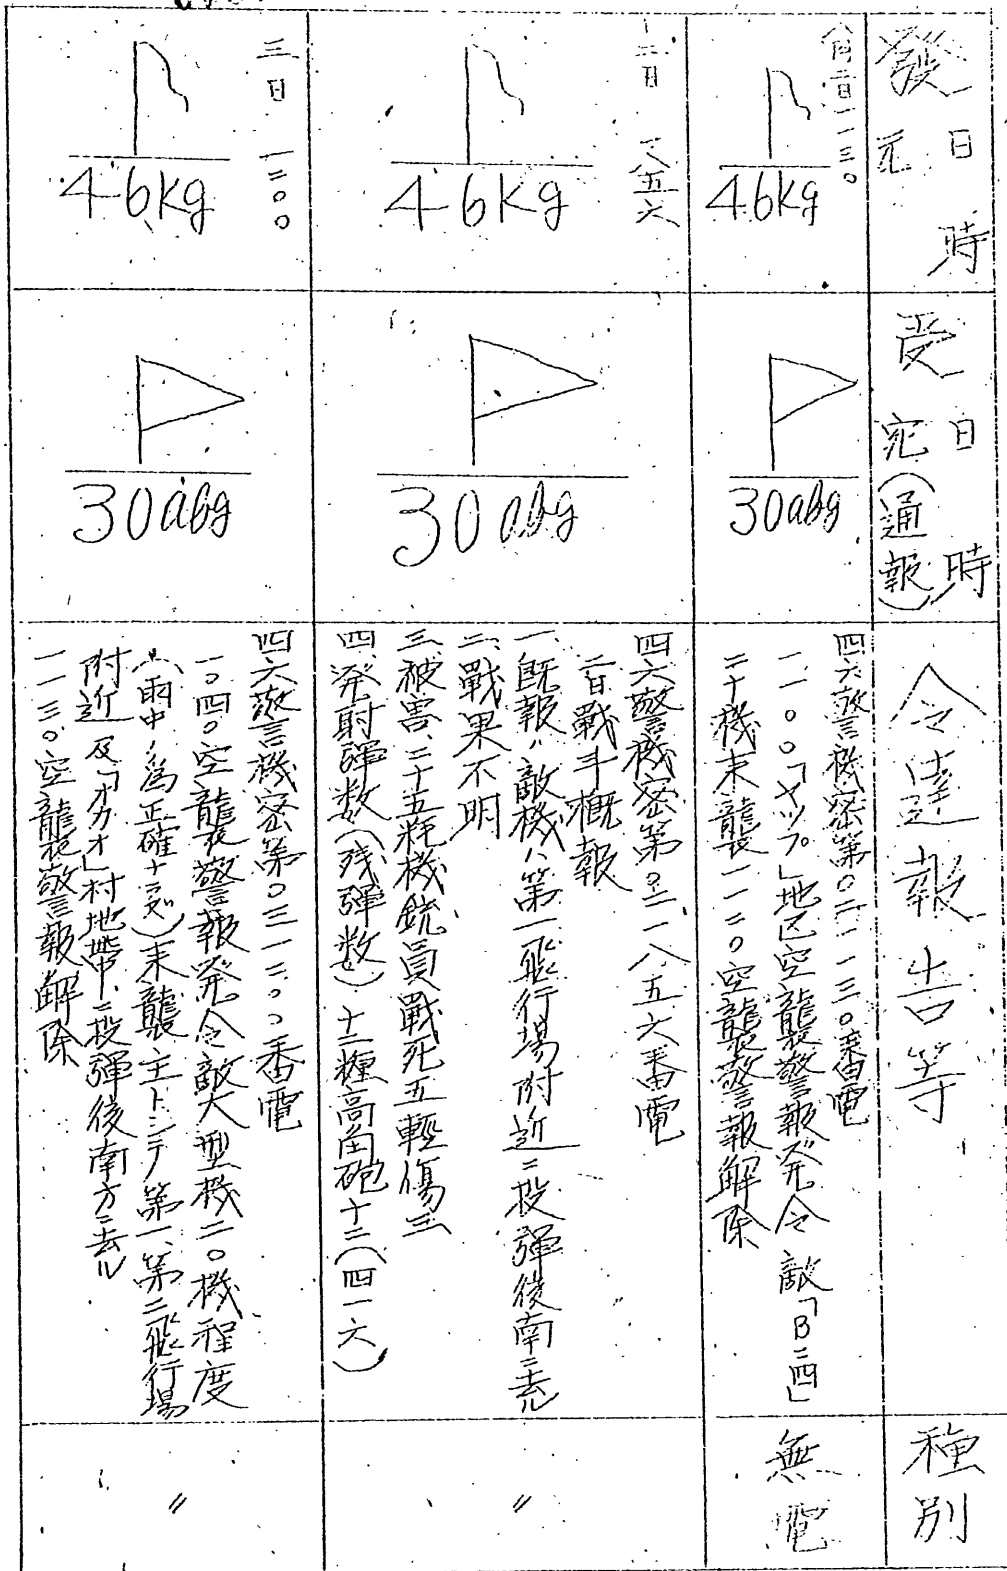 發元 日時
受宛(通報) 日時
令達報告等
種別
八月二日一一三〇
46kg
30abg
四六警機密第〇二一一三〇番電
一一〇〇「ヤップ」地区空襲警報発令敵「B二四」
二十機来襲一一二〇空襲警報解除
無電
〃二日 一八五六
46kg
30abg
四六警機密第〇二一八五六番電
二日戰斗概報
一、既報ノ敵機ハ第一飛行場附近ニ投弾後南ニ去ル
二、戰果不明
三、被害、二十五粍機銃員戰死五輕傷三
四、発射弾数(残弾数)十二糎高角砲十二(四一六)
〃
三日 一二〇〇
46kg
30abg
四六警機密第〇三一二〇〇番電
一〇四〇空襲警報発令敵大型機二〇機程度
(雨中ノ為正確ナラズ)来襲主トシテ第一、第二飛行場
附近及「オカオ」村地帶ニ投弾後南方ニ去ル
一一三〇空襲警報解除
〃